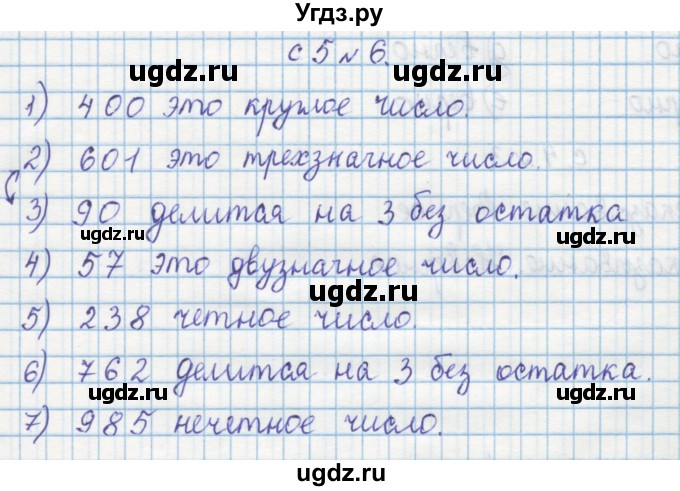 Угдз.ру
с 5 № 6.
ugdz.ru ugdz.ru
1) 400 это круглое число.
2) 601 это трехзначное число.
ugdz.ru
3) 90 делится на 3 без остатка
ugdz.ru ugdz.ru
4) 57 это двузначное число.
ugdz.ru
5) 238 четное число.
6) 762 делится на 3 без остатка.
ugdz.ru ugdz.ru
7) 985 нечетное число.
ugdz.ru